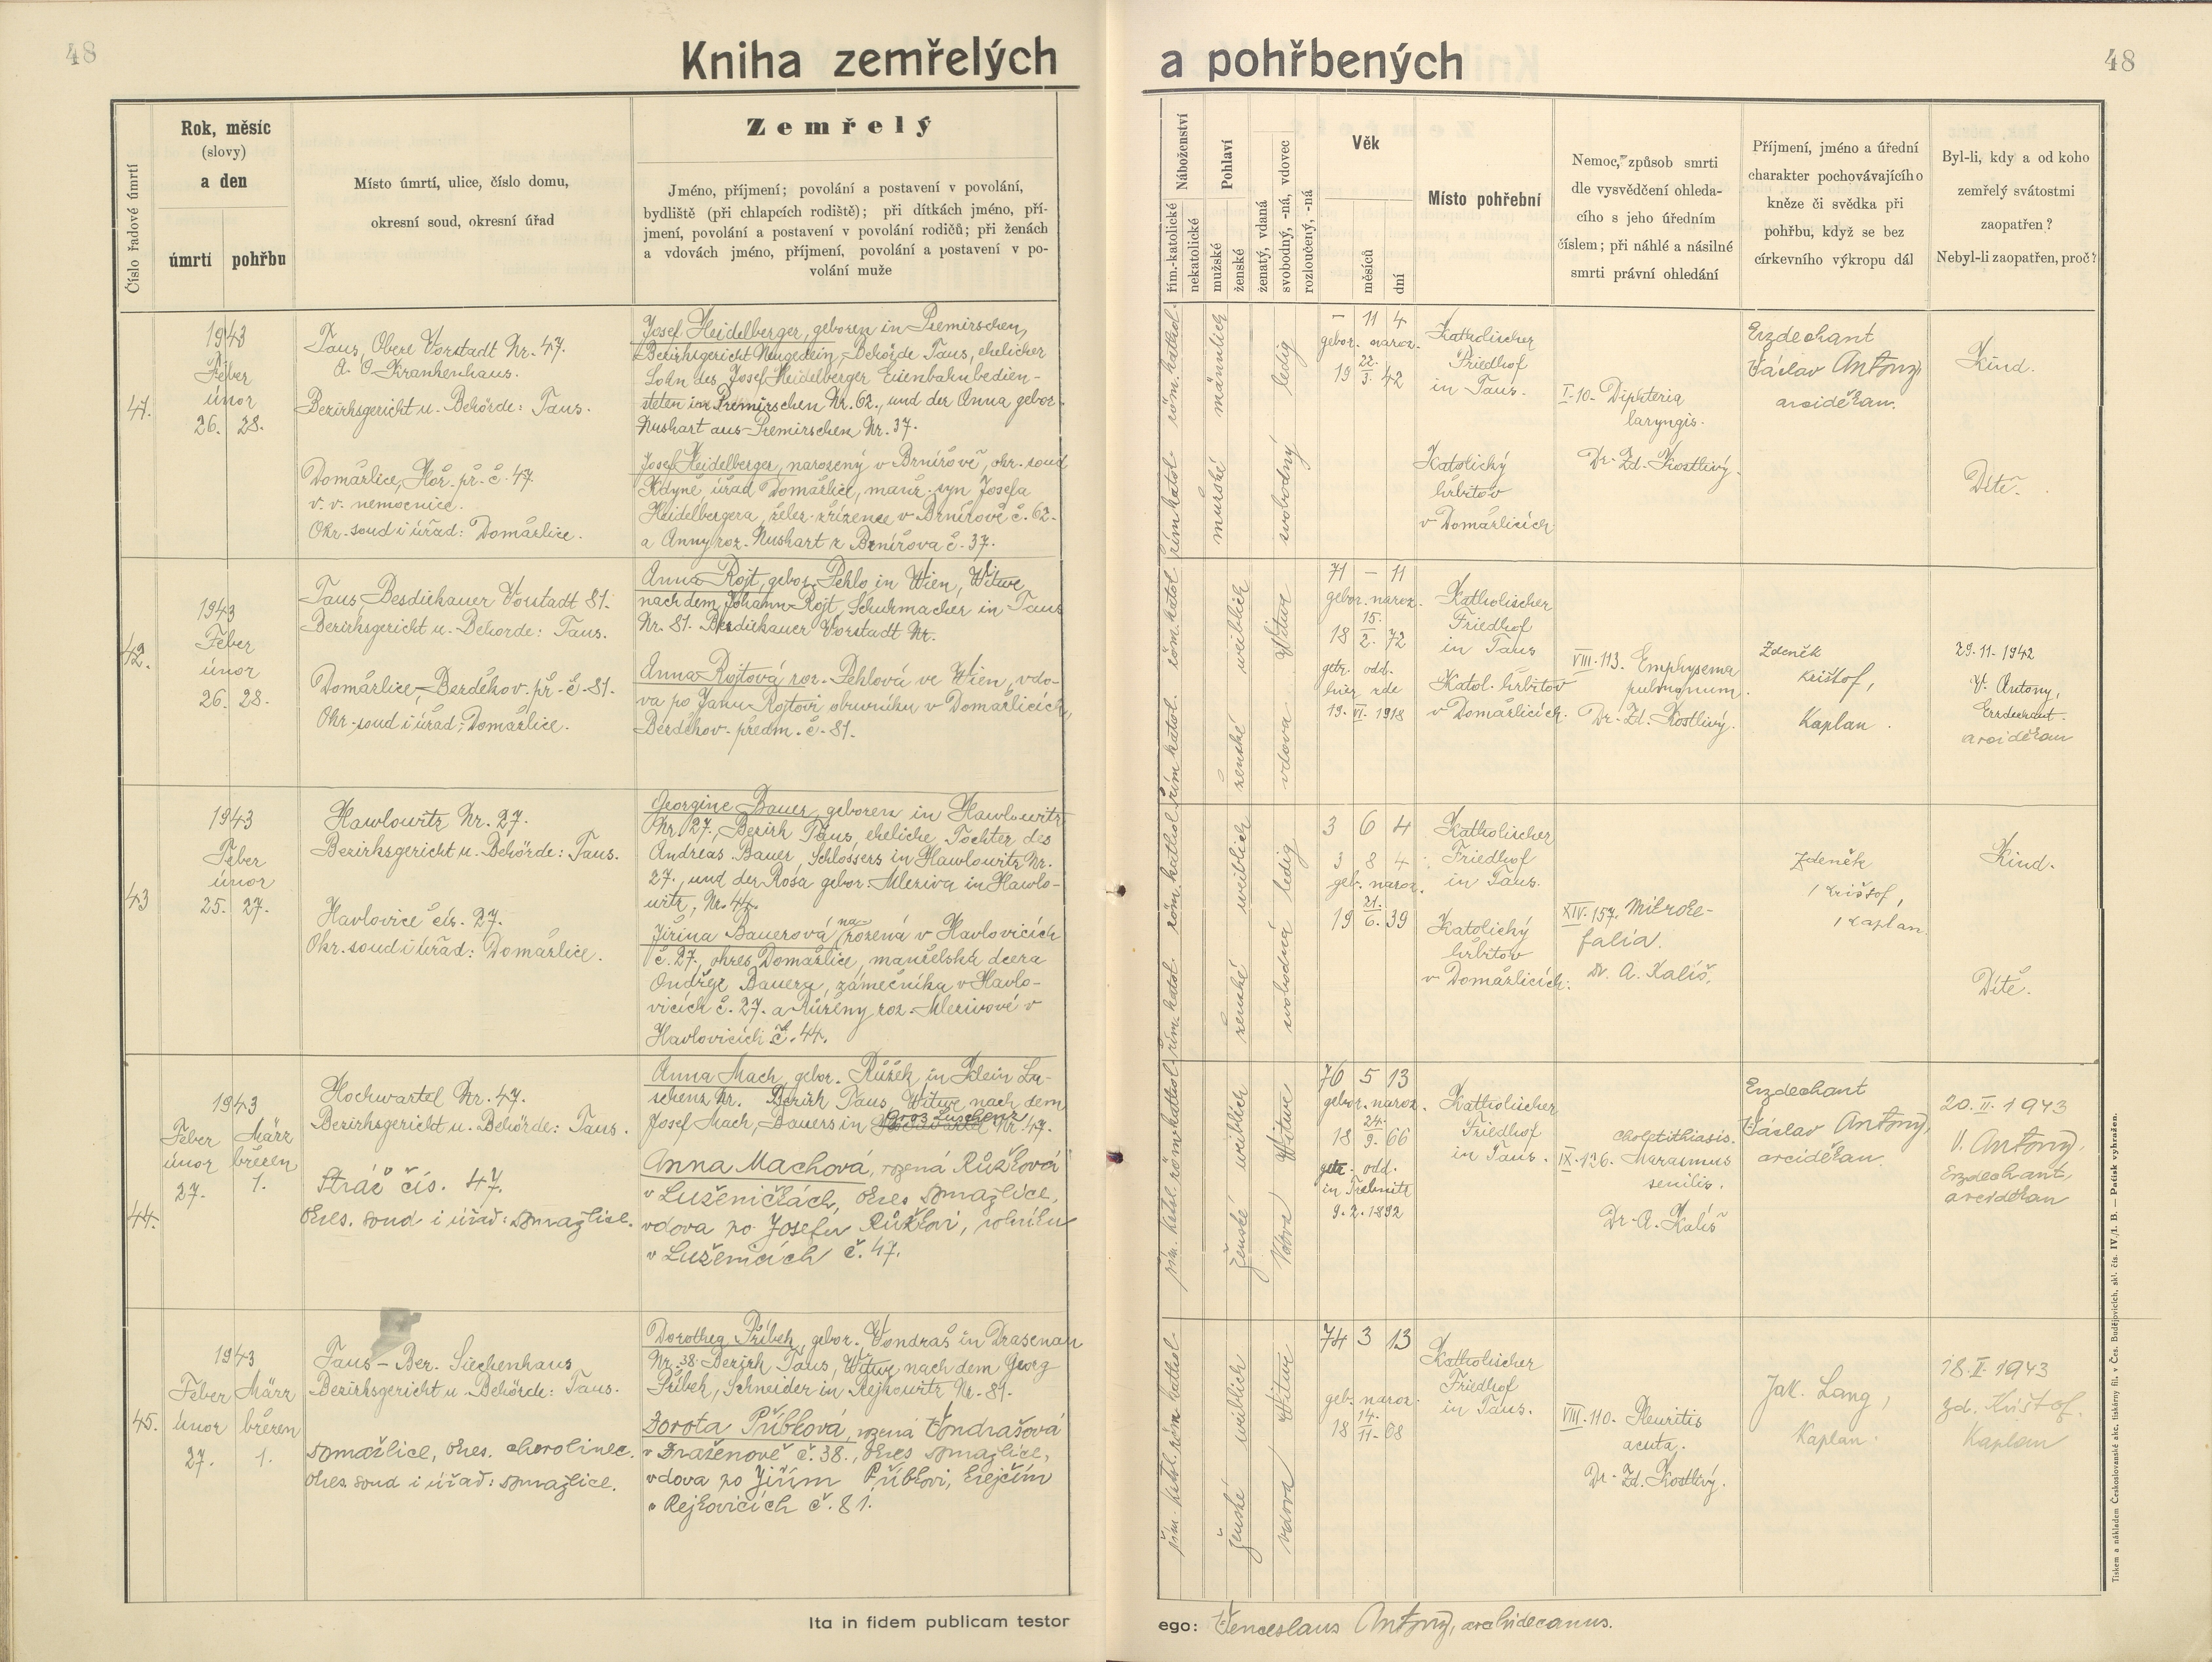 48
Kniha zemřelých
a pohřbených
48
Číslo řadové úmrtí
Rok, měsíc
(slovy)
a den
úmrtí
pohřbu
Místo úmrtí, ulice, číslo domu,
okresní soud, okresní úřad
Zemřelý
Jméno, příjmení; povolání a postavení v povolání,
bydliště (při chlapcích rodiště); při dítkách jméno, pří-
jmení, povolání a postavení v povolání rodičů; při ženách
a vdovách jméno, příjmení, povolání a postavení v po-
volání muže
Náboženství
řím.-katolické
nekatolické
Pohlaví
mužské
ženské
ženatý, vdaná
svobodný, -ná, vdovec
rozloučený, -ná
Věk
měsíců
dní
Místo pohřební
Nemoc, způsob smrti
dle vysvědčení ohleda-
cího s jeho úředním
číslem; při náhlé a násilné
smrti právní ohledání
Příjmení, jméno a úřední
charakter pochovávajícího
kněze či svědka při
pohřbu, když se bez
církevního výkropu dál
Byl-li, kdy a od koho
zemřelý svátostmi
zaopatřen?
Nebyl-li zaopatřen, proč?
41.
1943
Feber
únor
26. 28.
Taus, Obere Vorstadt Nr. 47.
A. Ö. Krankenhaus.
Bezirksgericht u. Behörde: Taus.
Domažlice, Hoř. př. č. 47.
v. v. nemocnice.
Okr. soud i úřad: Domažlice.
Josef Heidelberger, geboren in Premirschen,
Bezirksgericht Neugedein, Behörde Taus, ehelicher
Sohn des Josef Heidelberger Eisenbahnbedien-
steten in Premirschen Nr. 62., und der Anna gebor.
Nushart aus Premirschen Nr. 37.
Josef Heidelberger, narozený v Brnířově, okr. soud
Kdyně, úřad Domažlice, manž. syn Josefa
Heidelbergera, želez. zřízence v Brnířově č. 62.
a Anny roz. Nushart z Brnířova č. 37.
röm. kathol.
řím katol.
männlich
mužské
ledig
svobodný
– 11 4
gebor. naroz.
22.
19 3. 42
Katholischer
Friedhof
in Taus.
Katolický
hřbitov
v Domažlicích
I-10- Diphteria
laryngis.
Dr. Zd. Kostlivý.
Erzdechant
Václav Antony
arciděkan.
Kind.
Dítě.
42.
1943
Feber
únor
26. 28.
Taus, Besdiekauer Vorstadt 81.
Bezirksgericht u. Behörde: Taus.
Domažlice, Bezděkov. př. č. 81.
Okr. soud i úřad: Domažlice.
Anna Rojt, gebor. Pehlo in Wien, Witwe
nach dem Johann Rojt, Schuhmacher in Taus
Nr. 81. Besdiekauer Vorstadt Nr.
Anna Rojtová roz. Pehlová ve Wien, vdo-
va po Janu Rojtovi obuvníku v Domažlicích,
Bezděkov. předm. č. 81.
röm. katol.
řím katol.
weiblich
ženské
Witwe
vdova
71 – 11
gebor. naroz.
15.
18 2. 72
getr. odd.
hier zde
19. VI. 1918
Katholischer
Friedhof
in Taus
Katol. hřbitov
v Domažlicích.
VIII.-113. Emphysema
pulmonum.
Dr. Zd. Kostlivý.
Zdeněk
Krištof,
Kaplan.
29. 11. 1942
V. Antony,
Erzdechant.
arciděkan
43
1943
Feber
únor
25. 27.
Hawlowitz Nr. 27.
Bezirksgericht u. Behörde: Taus.
Havlovice čís. 27.
Okr. soud i úřad: Domažlice.
Georgine Bauer, geboren in Hawlowitz
Nr. 27., Bezirk Taus, eheliche Tochter des
Andreas Bauer, Schlossers in Hawlowitz Nr.
27., und der Rosa gebor. Mleziva in Hawlo-
witz, Nr. 44.
Jiřina Bauerová narozená v Havlovicích
č. 27., okres Domažlice, manželská dcera
Ondřeje Bauera, zámečníka v Havlo-
vicích č. 27. a Růženy roz. Mlezivové v
Havlovicích č. 44.
röm. kathol.
řím. katol.
weiblich
ženské
ledig
svobodná
3 6 4
3 8 4
geb. naroz.
21.
19 6. 39
Katholischer
Friedhof
in Taus.
Katolický
hřbitov
v Domažlicích.
XIV.-157. Mikroke-
falia.
Dr. A. Kališ.
Zdeněk
Krištof,
Kaplan.
Kind.
Dítě.
44.
1943
Feber März
únor březen
27. 1.
Hochwartel Nr. 47.
Bezirksgericht u. Behörde: Taus.
Stráž čís. 47.
okres. soud i úřad: Domažlice.
Anna Mach, gebor. Růžek, in Klein Lu-
schenz Nr. Bezirk Taus, Witwe nach dem
Josef Mach, Bauers in Gros Luschenz Nr. 47.
Anna Machová, rozená Růžková
v Luženičkách, okres Domažlice,
vdova po Josefu Růžkovi, rolníku
v Luženicích č. 47.
röm. kathol.
řím. katol.
weiblich
ženské
Witwe
vdova
76 5 13
gebor. naroz.
24.
18 9. 66
getr. odd.
in Trebnitz
9. 2. 1892
Katholischer
Friedhof
in Taus.
Cholelithiasis.
IX.-126. Marasmus
senilis.
Dr. A. Kališ
Erzdechant
Václav Antony,
arciděkan.
20. II. 1943
V. Antony,
Erzdechant,
arciděkan
45.
1943
Feber März
únor březen
27. 1.
Taus – Bez. Siechenhaus
Bezirksgericht u. Behörde: Taus.
Domažlice, okres. chorobinec.
okres. soud i úřad: Domažlice.
Dorothea Přibek, gebor. Vondraš in Drasenau
Nr. 38. Bezirk Taus, Witwe nach dem Georg
Přibek, Schneider in Rejkowitz Nr. 81.
Dorota Příbková, rozená Vondrašová
v Draženově č. 38., okres Domažlice,
vdova po Jiřím Příbkovi, krejčím
v Rejkovicích č. 81.
röm. kathol.
řím. katol.
weiblich
ženské
Witwe
vdova
74 3 13
geb. naroz.
14.
18 11. 68
Katholischer
Friedhof
in Taus.
VIII.-110. Pleuritis
acuta.
Dr. Zd. Kostlivý.
Jak. Lang,
Kaplan.
18. II. 1943
Zd. Krištof.
Kaplan
Ita in fidem publicam testor
ego: Venceslaus Antony, archidecanus.
Tiskem a nákladem Československé akc. tiskárny fil. v Čes. Budějovicích, skl. čís. IV./1. B. — Patisk vyhražen.